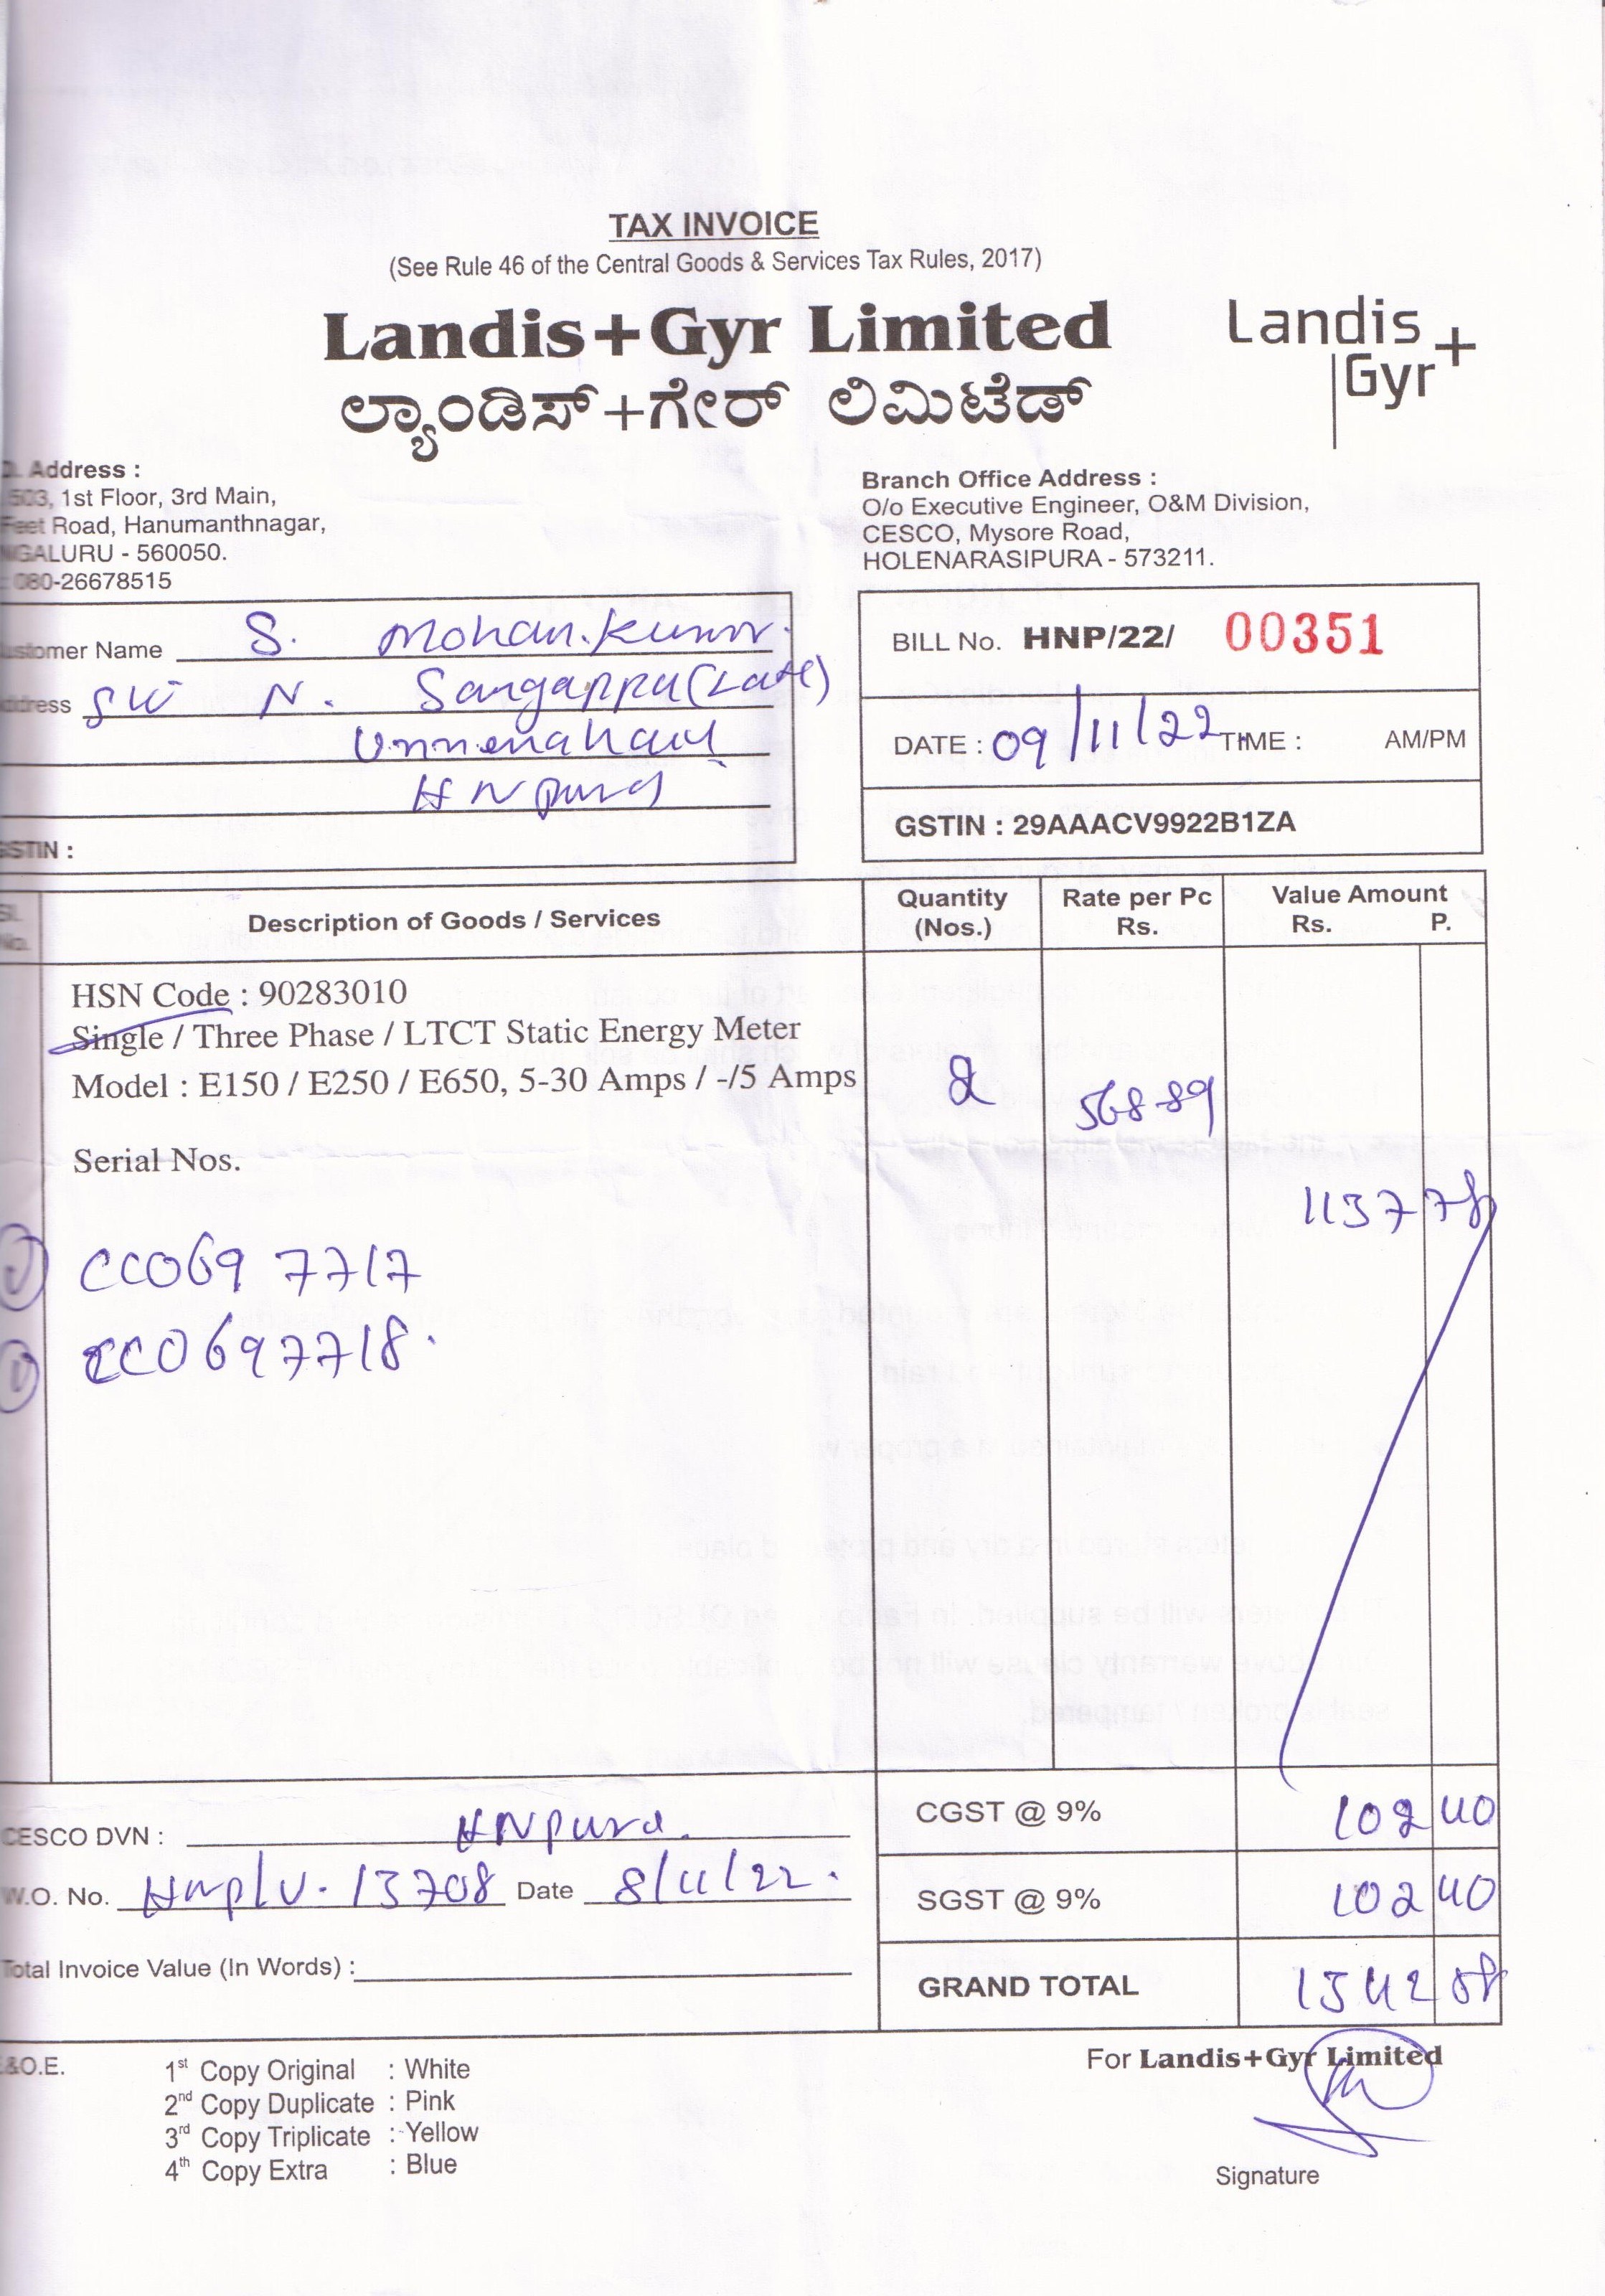 TAX INVOICE
(See Rule 46 of the Central Goods & Services Tax Rules, 2017)
Landis+Gyr Limited
Landis
Gyr+
ಲ್ಯಾಂಡಿಸ್+ಗೇರ್ ಲಿಮಿಟೆಡ್
Address :
503, 1st Floor, 3rd Main,
Feet Road, Hanumanthnagar,
NGALURU - 560050.
: 080-26678515
Branch Office Address :
O/o Executive Engineer, O&M Division,
CESCO, Mysore Road,
HOLENARASIPURA - 573211.
ustomer Name S. Mohan.Kumar.
ddress S/o N. Sangappa (Late)
HNpura
GSTIN :
BILL No. HNP/22/ 00351
DATE : 09/11/22 TIME : AM/PM
GSTIN : 29AAACV9922B1ZA
Sl. No. Description of Goods / Services Quantity (Nos.) Rate per Pc Rs. Value Amount Rs. P.
HSN Code : 90283010
Single / Three Phase / LTCT Static Energy Meter
Model : E150 / E250 / E650, 5-30 Amps / -/5 Amps 2 568-89
Serial Nos.
1137 78
CC069 7717
CC0697718.
CESCO DVN : HNpura.
CGST @ 9% 102 40
W.O. No. Hnp/V. 13708 Date 8/11/22.
SGST @ 9% 102 40
Total Invoice Value (In Words) :
GRAND TOTAL 1342 58
&O.E.
1st Copy Original : White
2nd Copy Duplicate : Pink
3rd Copy Triplicate : Yellow
4th Copy Extra : Blue
For Landis+Gyr Limited
Signature